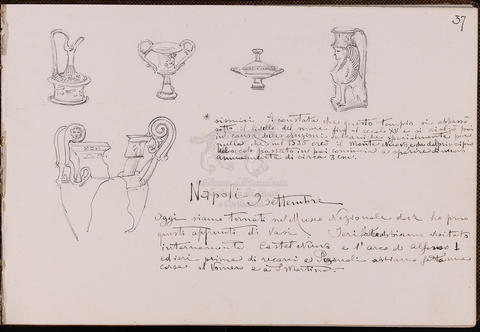 37
* sismici. Si constata che questo tempio si abbassò
sotto il livello del mare fino al secolo XV e si rialzò poi
in causa delle eruzioni vulcaniche specialmente per
quella che nel 1538 creò il Monte Nuovo e che dal principio
del secolo passato in poi comincia a sparire di nuovo
annualmente di circa 3 cm.
Napoli 9 settembre
Oggi siamo tornati nel Museo Nazionale dove ho preso
questi appunti di vasi. Ieri abbiamo visitato
internamente Castel Nuovo e l'arco di Alfonso I
ed ieri prima di recarci a Pozzuoli abbiamo fatto una
corsa al Vomero e a S. Martino.